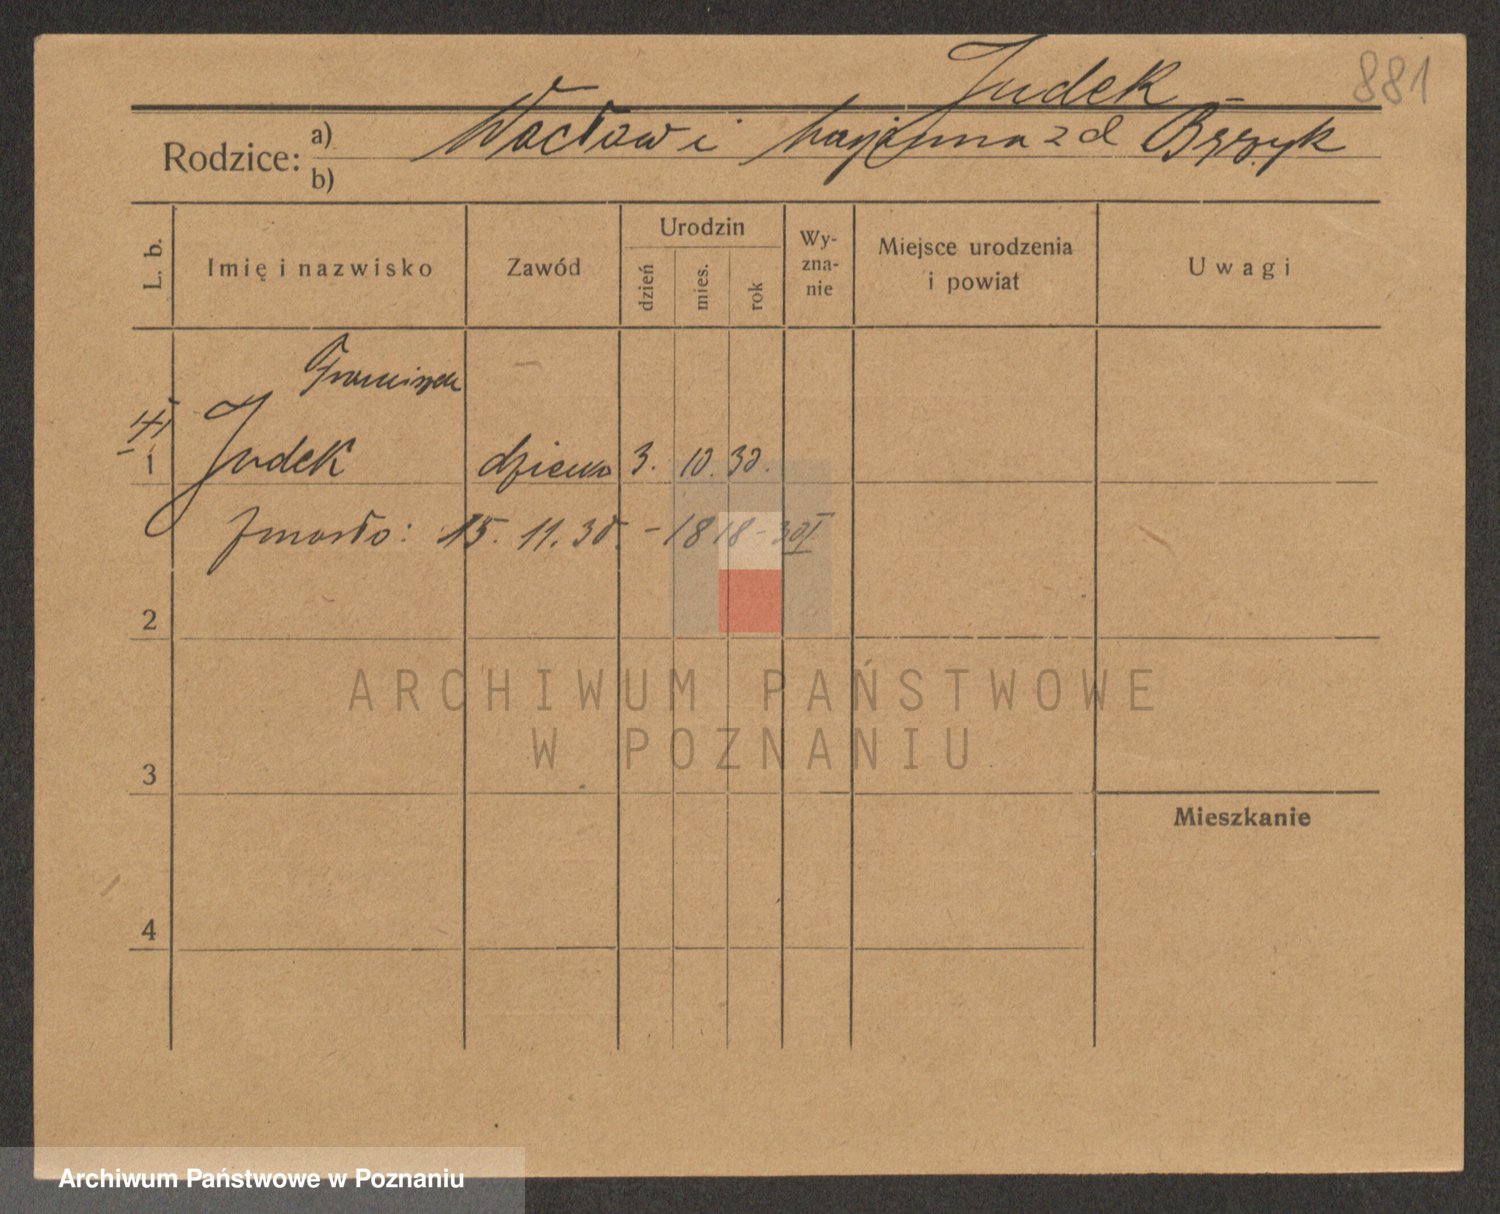 Judek 881
Rodzice: a) Wacław i Marjanna z d Brzyk
b)
L. b. Imię i nazwisko Zawód Urodzin dzień mies. rok Wy-zna-nie Miejsce urodzenia i powiat Uwagi
Franciszek
1 Judek dziecko 3. 10. 30.
zmarło: 15. 11. 30. - 1818-30
2
ARCHIWUM PAŃSTWOWE
W POZNANIU
3
Mieszkanie
4
Archiwum Państwowe w Poznaniu